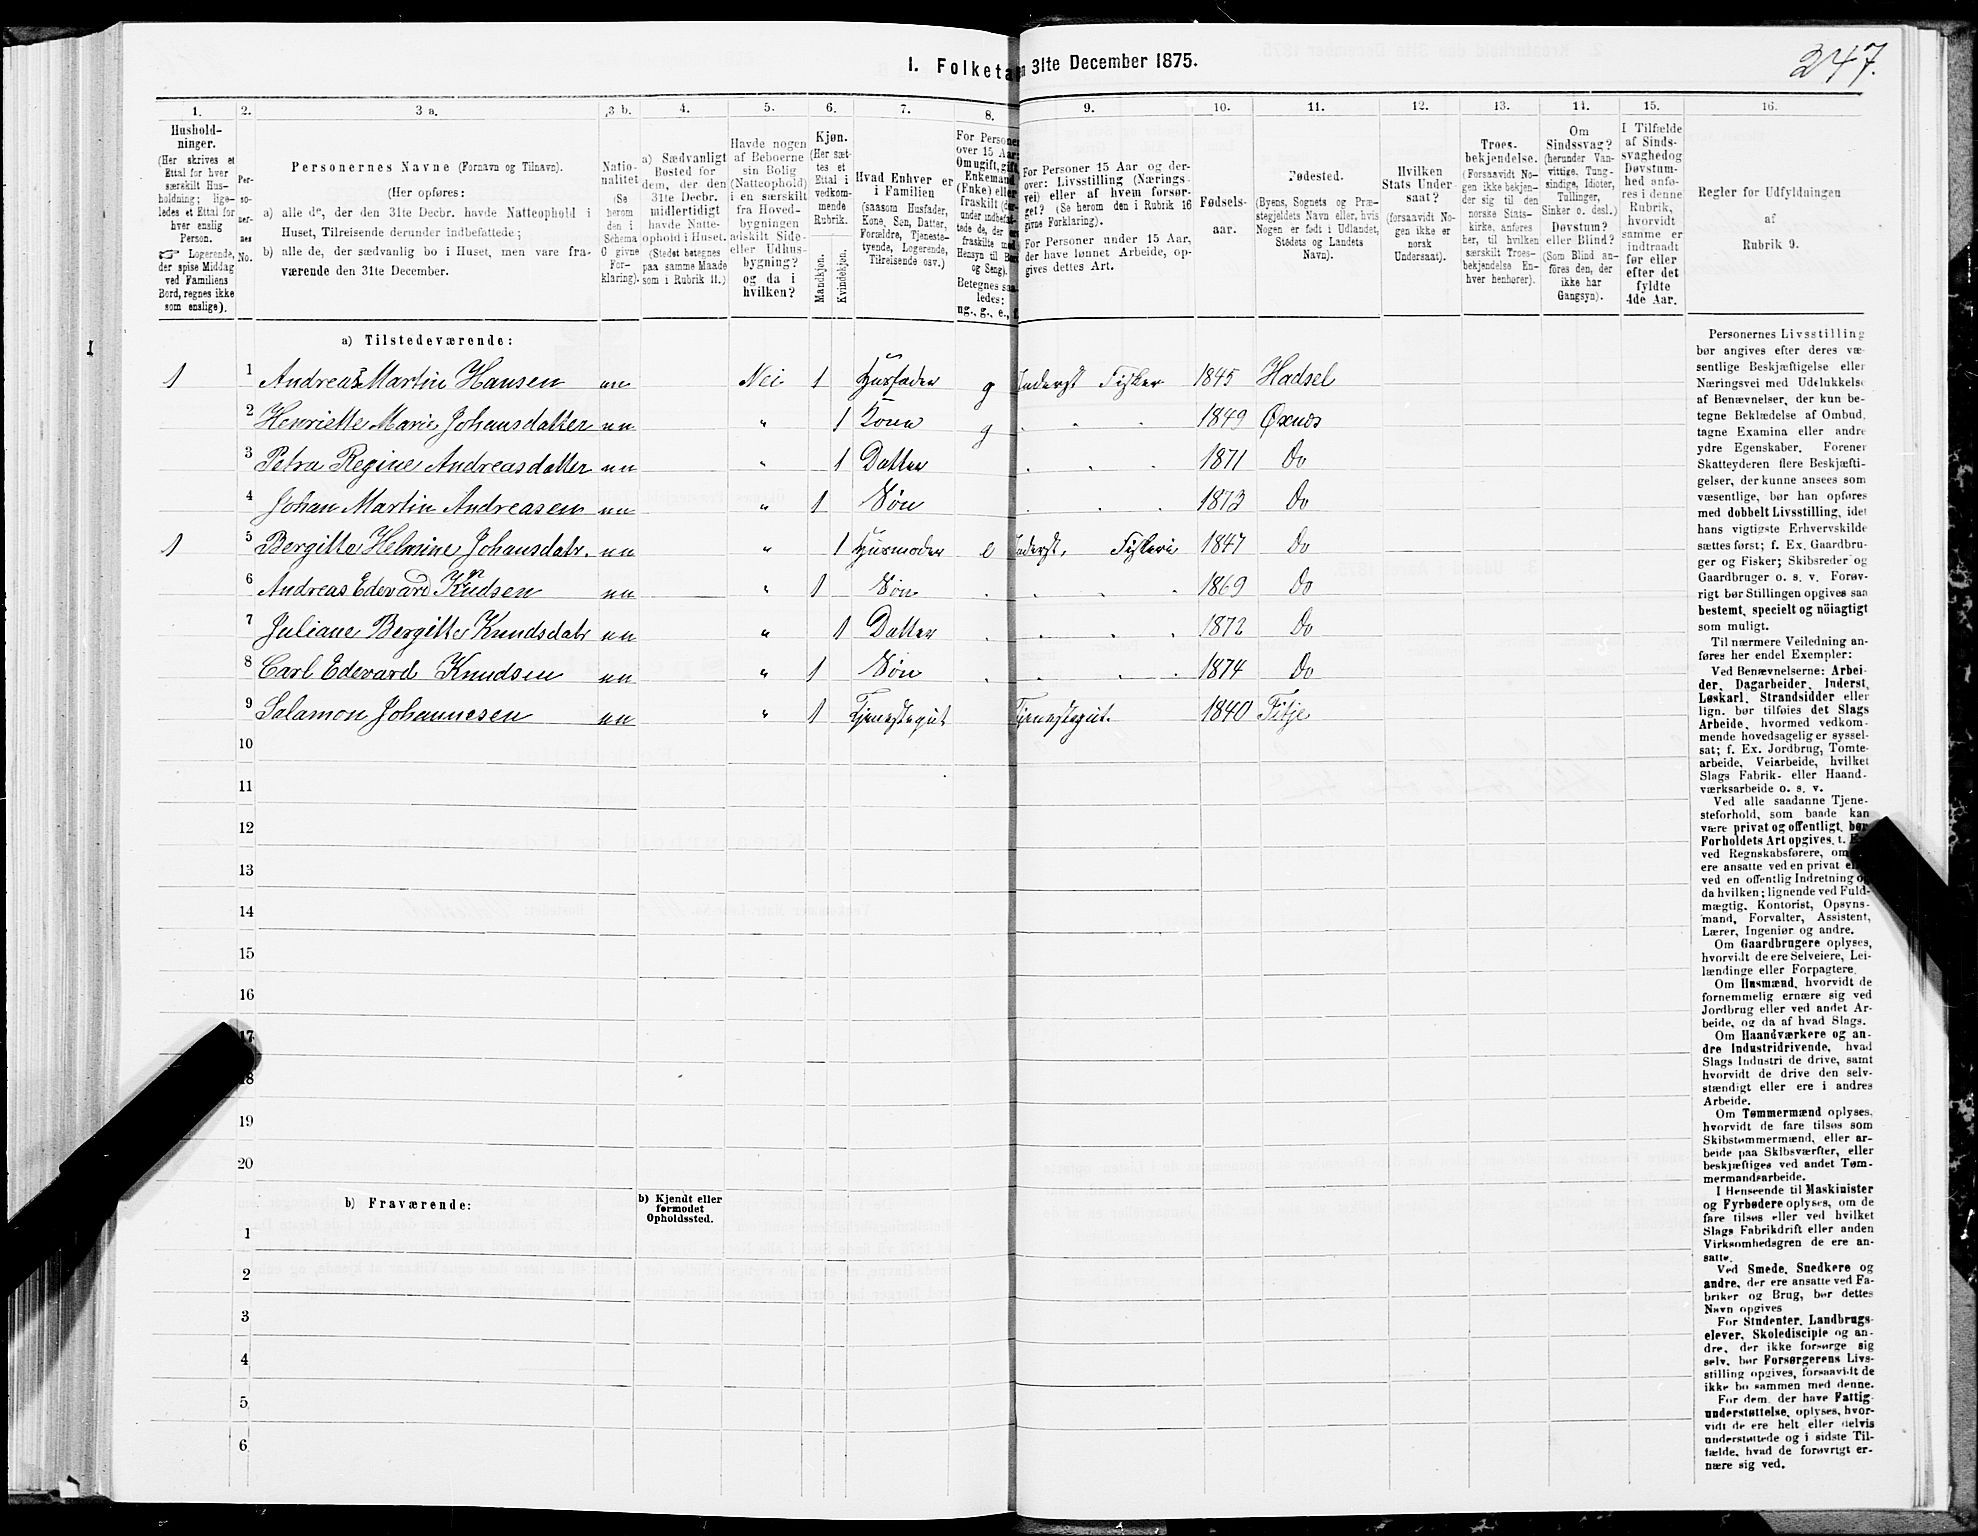 I. Folketa n 31te December 1875.
247.
1. 2. 3 a. 3 b. 4. 5. 6. 7. 8. 9. 10. 11. 12. 13. 14. 15. 16.
Hushold-
ninger.
(Her skrives et
Ettal for hver
særskilt Hus-
holdning; lige-
ledes et Ettal for
hver enslig
Person.
☞ Logerende,
der spise Middag
ved Familiens
Bord, regnes ikke
som enslige).
Per-
so-
ner-
nes
No.
Personernes Navne (Fornavn og Tilnavn).
(Her opføres:
a) alle de, der den 31te Decbr. havde Natteophold i
Huset, Tilreisende derunder indbefattede;
b) alle de, der sædvanlig bo i Huset, men vare fra-
værende den 31te December.
Natio-
nalitet
(Se
herom
den i
Schema
O givne
For-
klaring).
a) Sædvanligt
Bosted for
dem, der den
31te Decbr.
midlertidigt
havde Natte-
ophold i Huset.
(Stedet betegnes
paa samme Maade
som i Rubrik 11.)
Havde nogen
af Beboerne
sin Bolig
(Natteophold)
i en særskilt
fra Hoved-
bygningen
adskilt Side-
eller Udhus-
bygning?
og da i
hvilken?
Kjøn.
(Her sæt-
tes et
Ettal i
vedkom-
mende
Rubrik.
Mandkjøn.
Kvindekjøn.
Hvad Enhver er
i Familien
(saasom Husfader,
Kone, Søn, Datter,
Forældre, Tjeneste-
tyende, Logerende,
Tilreisende osv.)
For Person
over 15 Aar:
Om ugift, gift,
Enkemand
(Enke) eller
fraskilt (der-
under indbefat-
tede de, der ere
fraskilte med
Hensyn til Bord
og Seng).
Betegnes saa-
ledes:
ng., g., e., f.
For Personer 15 Aar og der-
over: Livsstilling (Nærings-
vei) eller af hvem forsør-
get? (Se herom den i Rubrik 16
givne Forklaring).
For Personer under 15 Aar,
der have lønnet Arbeide, op-
gives dettes Art.
Fødsels-
aar.
Fødested.
(Byens, Sognets og Præ-
stegjeldets Navn eller, hvis
Nogen er født i Udlandet,
Stedets og Landets
Navn).
Hvilken
Stats Under-
saat?
(forsaavidt No-
gen ikke er
norsk
Undersaat).
Troes-
bekjendelse.
(Forsaavidt No-
gen ikke bekjen-
der sig til den
norske Stats-
kirke, anføres
her, til hvilken
særskilt Troes-
bekjendelse En-
hver henhører).
Om
Sindssvag?
(herunder Van-
vittige, Tung-
sindige, Idioter,
Tullinger,
Sinker o. desl.)
Døvstum?
eller Blind?
(Som Blind an-
føres den, der
ikke har
Gangsyn).
I Tilfælde
af Sinds-
svaghed og
Døvstum-
hed anfø-
res i denne
Rubrik,
hvorvidt
samme er
indtraadt
før eller
efter det
fyldte
4de Aar.
Regler for Udfyldningen
af
Rubrik 9.
a) Tilstedeværende:
1 1 Andreas Martin Hansen nn Nei 1 Husfader g Inderst Fisker 1845 Hadsel
2 Henriette Marie Johansdatter nn " 1 Kone g " " " 1849 Øxnes
3 Petra Regine Andreasdatter nn " 1 Datter " " " 1871 Do
4 Johan Martin Andreasen nn " 1 Søn " " " 1873 Do
1 5 Bergitte Helmine Johansdatr. nn " 1 Husmoder e Inderst, Fiskeri 1847 Do
6 Andreas Edevard Knudsen nn " 1 Søn " " " " 1869 Do
7 Juliane Bergitte Knudsdatr nn " 1 Datter " " " " 1872 Do
8 Carl Edevard Knudsen nn " 1 Søn " " " " 1874 Do
9 Salamon Johannesen nn " 1 Tjenestegut Tjenestegut. 1840 Titje
10
11
12
13
14
15
16
17
18
19
20
b) Fraværende:
b) Kjendt eller
formodet
Opholdssted.
1
2
3
4
5
6
Personernes Livsstilling
bør angives efter deres væ-
sentlige Beskjæftigelse eller
Næringsvei med Udelukkelse
af Benævnelser, der kun be-
tegne Beklædelse af Ombud,
tagne Examina eller andre
ydre Egenskaber. Forener
Skatteyderen flere Beskjæfti-
gelser, der kunne ansees som
væsentlige, bør han opføres
med dobbelt Livsstilling, idet
hans vigtigste Erhvervskilde
sættes først; f. Ex. Gaardbru-
ger og Fisker; Skibsreder og
Gaardbruger o. s. v. Forøv-
rigt bør Stillingen opgives saa
bestemt, specielt og nöiagtigt
som muligt.
Til nærmere Veiledning an-
føres her endel Exempler:
Ved Benævnelserne: Arbei-
der, Dagarbeider, Inderst,
Løskarl, Strandsidder eller
lign. bør tilføies det Slags
Arbeide, hvormed vedkom-
mende hovedsagelig er syssel-
sat; f. Ex. Jordbrug, Tomte-
arbeide, Veiarbeide, hvilket
Slags Fabrik- eller Haand-
værksarbeide o. s. v.
Ved alle saadanne Tjene-
steforhold, som baade kan
være privat og offentligt, bør
Forholdets Art opgives, t. E
ved Regnskabsførere, om
ere ansatte ved en privat e
ved en offentlig Indretning o
da hvilken; lignende ved Fuld-
mægtig, Kontorist, Opsyns-
mand, Forvalter, Assistent,
Lærer, Ingeniør og andre.
Om Gaardbrugere oplyses,
hvorvidt de ere Selveiere, Lei-
lændinge eller Forpagtere.
Om Husmænd, hvorvidt de
fornemmelig ernære sig ved
Jordbrug eller ved andet Ar-
beide, og da af hvad Slags.
Om Haandværkere og an-
dre Industridrivende, hvad
Slags Industri de drive, samt
hvorvidt de drive den selv-
stændigt eller ere i andres
Arbeide.
Om Tømmermænd oplyses,
hvorvidt de fare tilsøs som
Skibstømmermænd, eller ar-
beide paa Skibsværfter, eller
beskjæftiges ved andet Tøm-
mermandsarbeide.
I Henseende til Maskinister
og Fyrbødere oplyses, om de
fare tilsøs eller ved hvilket
Slags Fabrikdrift eller anden
Virksomhedsgren de ere an-
satte.
Ved Smede, Snedkere og
andre, der ere ansatte ved Fa-
briker og Brug, bør dettes
Navn opgives
For Studenter, Landbrugs-
elever, Skoledisciple og an-
dre, der ikke forsørge sig
selv, bør Forsørgerens Livs-
stilling opgives, forsaavidt de
ikke bo sammen med denne.
For dem, der have Fattig-
understøttelse, oplyses, hvor-
vidt de ere helt eller delvis
understøttede og i sidste Til-
fælde, hvad de forøvrigt er-
nære sig ved.